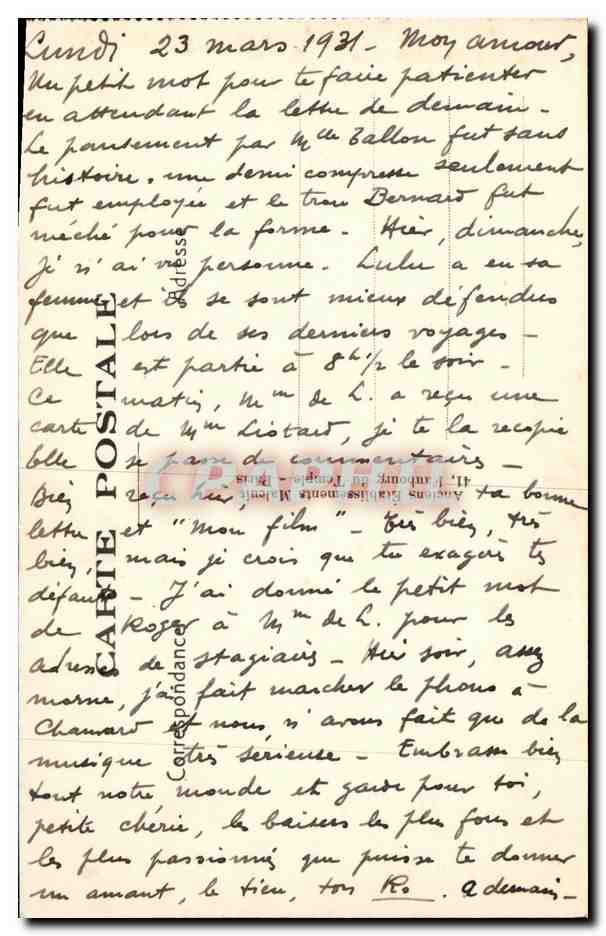 Lundi 23 mars 1931 - Mon amour,
Un petit mot pour te faire patienter
en attendant la lettre de demain -
Le pansement par Mlle Tallon fut sans
histoire. une demi compresse seulement
fut employée et le trou Bernard fut
méché pour la forme - Hier, dimanche,
je n'ai vu personne. Lulu a eu sa
femme et ils se sont mieux défendus
que lors de ses derniers voyages -
Elle est partie à 8h 1/2 le soir -
Ce matin, Mme de L. a reçu une
carte de Mme Liotard, je te la recopie
Elle se passe de commentaires -
Bien reçu hier, ta bonne
lettre et "Mon film" - Très bien, très
bien, mais je crois que tu exagères tes
défauts - J'ai donné le petit mot
de Roger à Mme de L. pour les
adresses de stagiaires - Hier soir, assez
morne, j'ai fait marcher le phono à
Chamard et nous n'avons fait que de la
musique très sérieuse - Embrasse bien
tout notre monde et garde pour toi,
petite chérie, les baisers les plus fous et
les plus passionnés que puisse te donner
un amant, le tien, ton Ro. A demain -
CARTE POSTALE
Correspondance
Adresse
Anciens Etablissements Malcuit
41, Faubourg du Temple - Paris